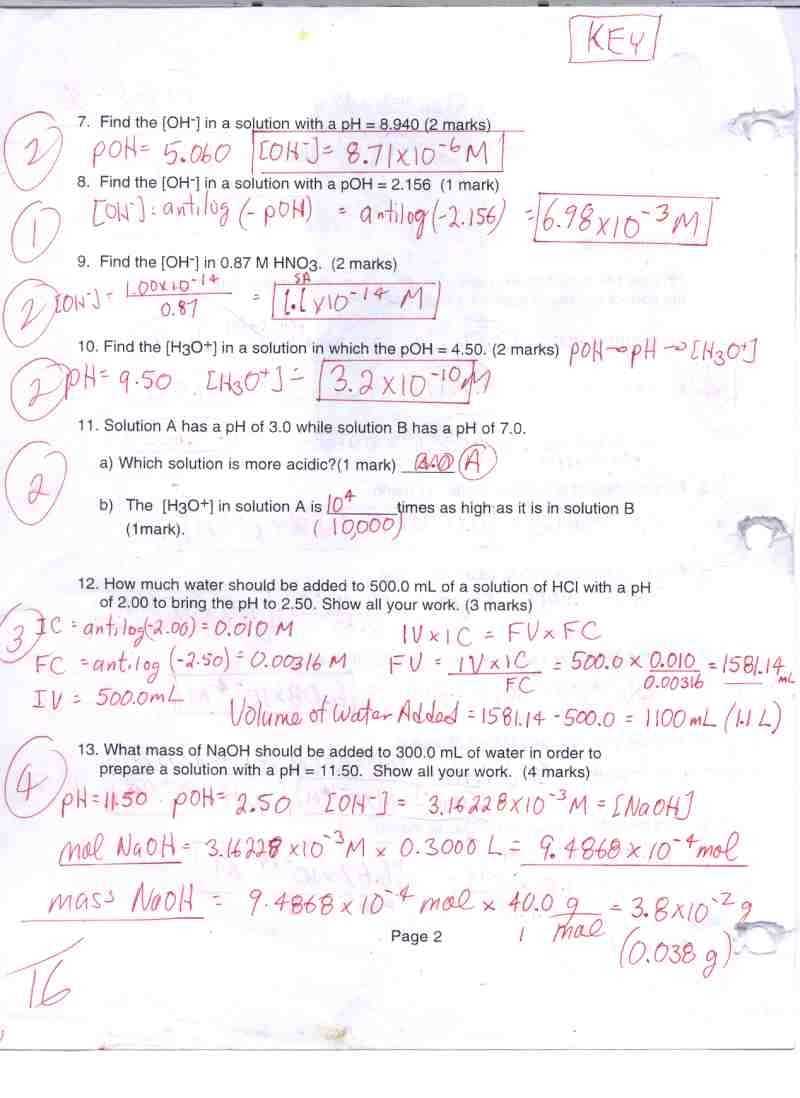 KEY
7. Find the [OH-] in a solution with a pH = 8.940 (2 marks)
2 pOH = 5.060 [OH-] = 8.71 x 10-6 M
8. Find the [OH-] in a solution with a pOH = 2.156 (1 mark)
1 [OH-] : antilog (- pOH) = antilog (-2.156) = 6.98 x 10-3 M
9. Find the [OH-] in 0.87 M HNO3. (2 marks)
SA
2 [OH-] = 1.00x10-14 / 0.87 = 1.1 x 10-14 M
10. Find the [H3O+] in a solution in which the pOH = 4.50. (2 marks) pOH → pH → [H3O+]
2 pH = 9.50 [H3O+] = 3.2 x 10-10 M
11. Solution A has a pH of 3.0 while solution B has a pH of 7.0.
2
a) Which solution is more acidic?(1 mark) A
b) The [H3O+] in solution A is 10^4 times as high as it is in solution B
(1mark). (10,000)
12. How much water should be added to 500.0 mL of a solution of HCl with a pH
of 2.00 to bring the pH to 2.50. Show all your work. (3 marks)
3 IC = antilog(-2.00) = 0.010 M IV x IC = FV x FC
FC = antilog (-2.50) = 0.00316 M FV = IV x IC / FC = 500.0 x 0.010 / 0.00316 = 1581.14 mL
IV = 500.0mL
Volume of Water Added = 1581.14 - 500.0 = 1100 mL (1.1 L)
13. What mass of NaOH should be added to 300.0 mL of water in order to
prepare a solution with a pH = 11.50. Show all your work. (4 marks)
4 pH = 11.50 pOH = 2.50 [OH-] = 3.16228 x 10-3 M = [NaOH]
mol NaOH = 3.16228 x 10-3 M x 0.3000 L = 9.4868 x 10-4 mol
mass NaOH = 9.4868 x 10-4 mol x 40.0 g / 1 mol = 3.8 x 10-2 g
Page 2
(0.038 g)
16